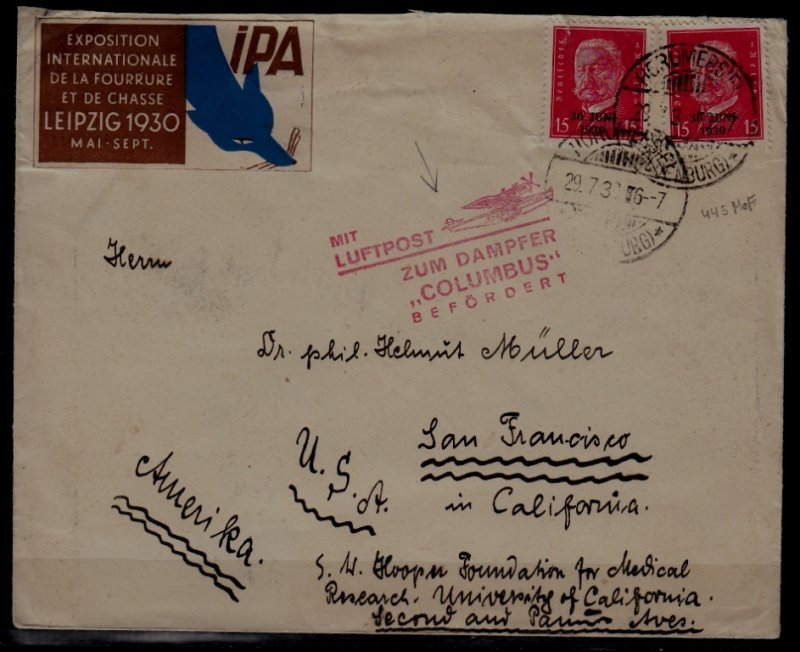 EXPOSITION
INTERNATIONALE
DE LA FOURRURE
ET DE CHASSE
LEIPZIG 1930
MAI - SEPT.
iPA
30. JUNI
1930
15
30. JUNI
1930
15 15
29.7.30 16-7
BURG)*
445 MeF
MIT
LUFTPOST
ZUM DAMPFER
„COLUMBUS“
BEFÖRDERT
Herrn
Dr. phil. Helmut Müller
San Francisco
in California.
U.S.A.
Amerika.
G. W. Hooper Foundation for Medical
Research. University of California.
Second and Avs.